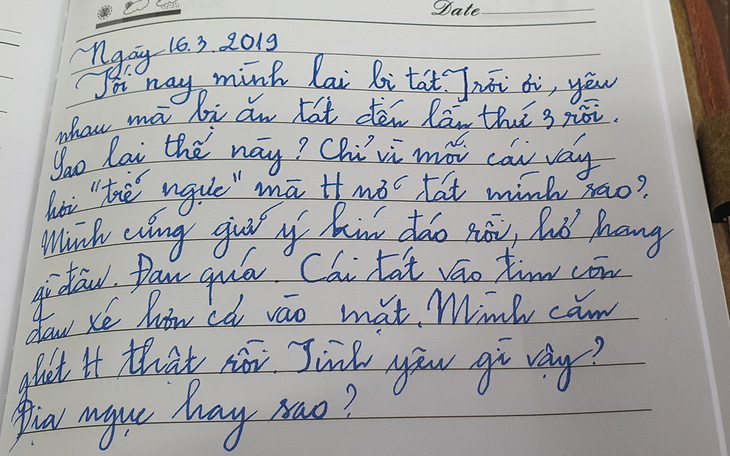 Date
Ngày 16.3.2019
Tối nay mình lại bị tát. Trời ơi, yêu
nhau mà bị ăn tát đến lần thứ 3 rồi.
Sao lại thế này? Chỉ vì mỗi cái váy
hơi "trễ ngực" mà H nỡ tát mình sao?
Mình cũng giữ ý kín đáo rồi, hở hang
gì đâu. Đau quá. Cái tát vào tim còn
đau xé hơn cả vào mặt. Mình căm
ghét H thật rồi. Tình yêu gì vậy?
Địa ngục hay sao?